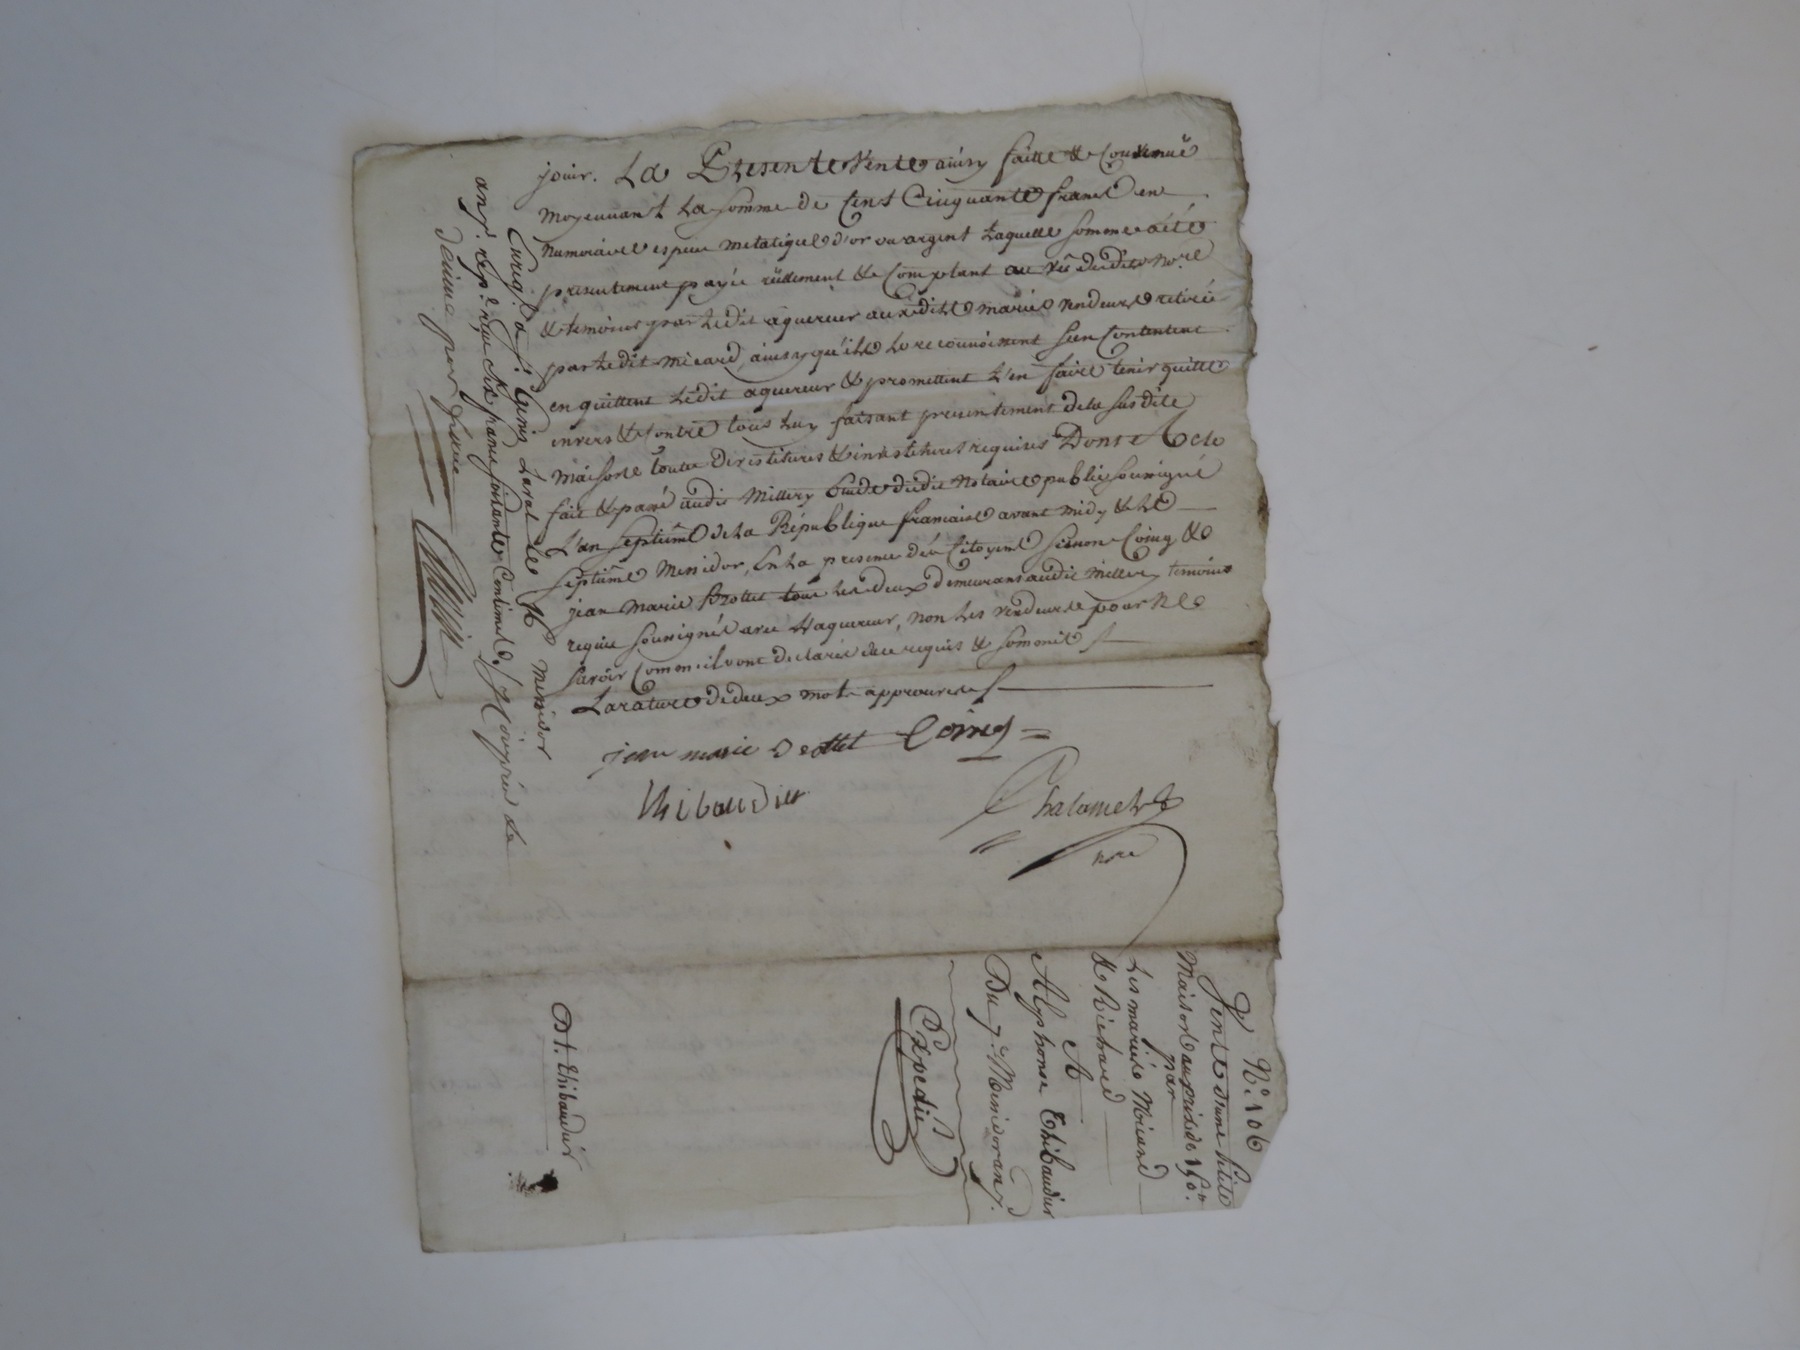 jouir. La Presente Vente ainsy faitte & Convenuë
moyennant La somme de Cent Cinquante francs en
numeraire espece metalique d'or ou argent Laquelle somme a été
presentement payée réellement & Comptant au vû dudit no.re
& temoins par Ledit aquereur auxdits mariés vendeurs retirée
par Ledit micard, ainsy qu'ils Le reconnoissent s'en Contentent
en quittent Ledit aquereur & promettent L'en faire tenir quitte
envers & Contre tous Luy faisant presentement de la susdite
maison toutes devestitures & investitures requises Dont Acte
fait & passé audit Millery Etude dudit Notaire public soussigné
L'an septiême de la République francaise avant midy & Le
septiême Messidor, En La presence des Citoyens Coing &
jean marie Brottet tous Les deux demeurans audit millery temoins
requis soussignés avec L'aquereur, non Les vendeurs pour ne
savoir Comme ils ont declaré de ce requis & sommés
La rature de deux mots approuvée
jean marie Brottet Coing
thibaudier
Chalamel
nore
Enreg. à St. Genis Laval le 16 messidor
an 7. rep.e reçu six francs soixante Centimes. Y Compris le
dixieme par franc
N.o 106
Vente d'une petite
Maison au prix de 150.
par
Les mariés Micard
& Richard
A
Alphonse Thibaudier
Du 7. Messidor an 7.
Expedié
Dt. thibaudier